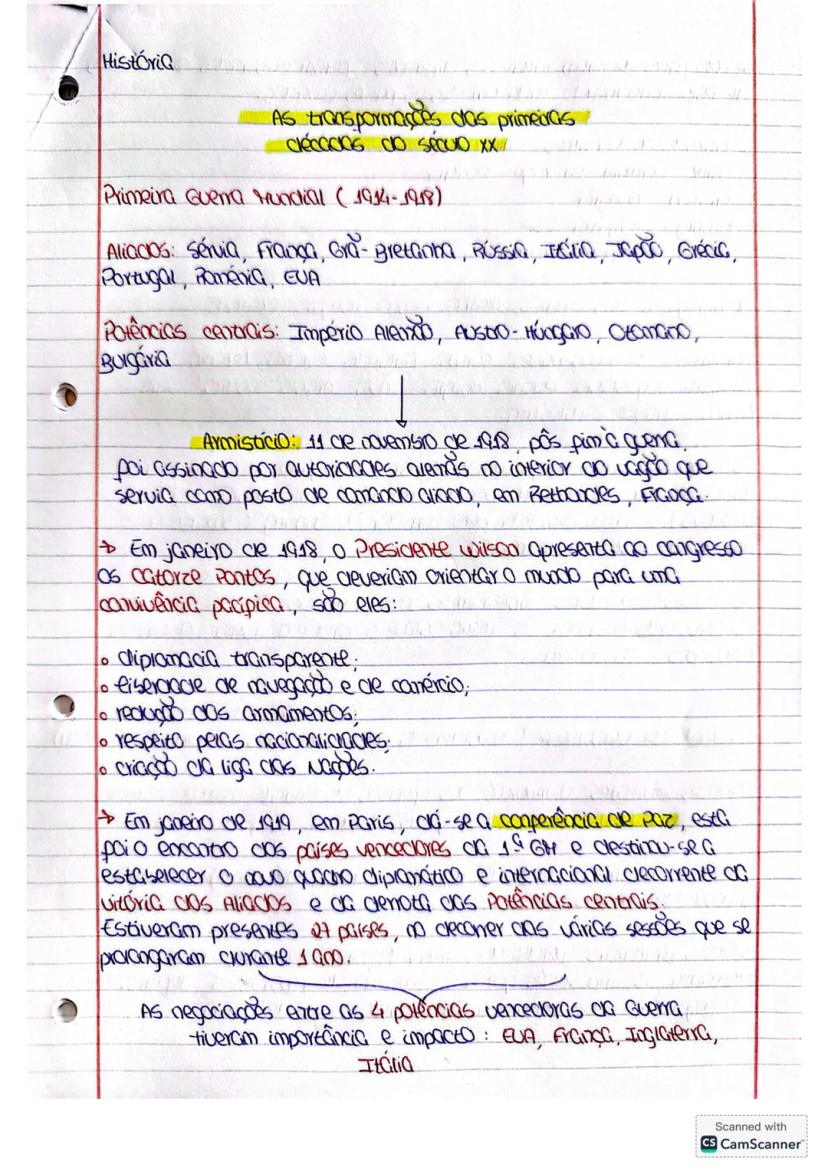 História
As transformações das primeiras
décadas do século XX
Primeira Guerra Mundial (1914-1918)
Aliados: Sérvia, França, Grã-Bretanha, Rússia, Itália, Japão, Grécia,
Portugal, Roménia, EUA
Potências centrais: Império Alemão, Austro-Húngaro, Otomano,
Bulgária
Armistício: 11 de novembro de 1918, pôs fim à guerra,
foi assinado por autoridades alemãs no interior do vagão que
servia como posto de comando aliado, em Rethondes, França.
→ Em janeiro de 1918, o Presidente Wilson apresenta ao congresso
os catorze Pontos, que deveriam orientar o mundo para uma
convivência pacífica, são eles:
• diplomacia transparente;
• liberdade de navegação e de comércio;
• redução dos armamentos;
• respeito pelas nacionalidades;
• criação da liga das Nações.
→ Em janeiro de 1919, em Paris, dá-se a conferência de Paz, esta
foi o encontro dos países vencedores da 1ª GM e destinou-se a
estabelecer o novo quadro diplomático e internacional decorrente da
vitória dos Aliados e da derrota das Potências centrais.
Estiveram presentes 27 países, no decorrer das várias sessões que se
prolongaram durante 1 ano.
As negociações entre as 4 potências vencedoras da Guerra
tiveram importância e impacto: EUA, França, Inglaterra,
Itália
Scanned with
CS CamScanner